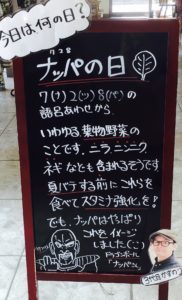 今日は何の日?
728
ナッパの日
7(ナ)2(ツ)8(パ)の
語呂あわせから
いわゆる葉物野菜の
ことです。ニラ ニンニク
ネギ なども含まれるそうです
夏バテする前に これらを
食べて スタミナ強化を!
でも、ナッパはやっぱり
これをイメージ
しました(^_^;)
ドラゴンボール
「ナッパ」
3代目かずのり